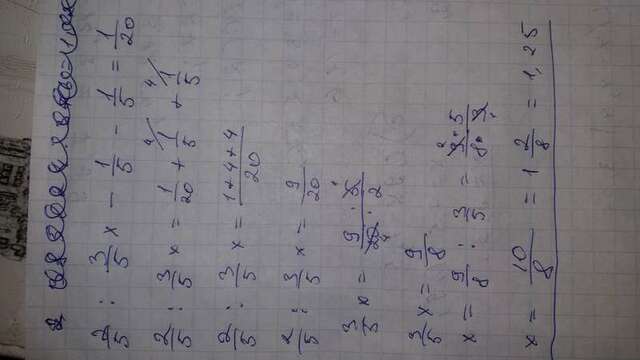 2
2/5 : 3/5 x - 1/5 - 1/5 = 1/20
2/5 : 3/5 x = 1/20 + 4/ 1/5 + 4/ 1/5
2/5 : 3/5 x = 1+4+4/20
2/5 : 3/5 x = 9/20
3/5 x = 9 · 5/20 · 2 4
3/5 x = 9/8
x = 9/8 : 3/5 = 9 · 5/8 · 3 2
x = 10/8 = 1 2/8 = 1,25